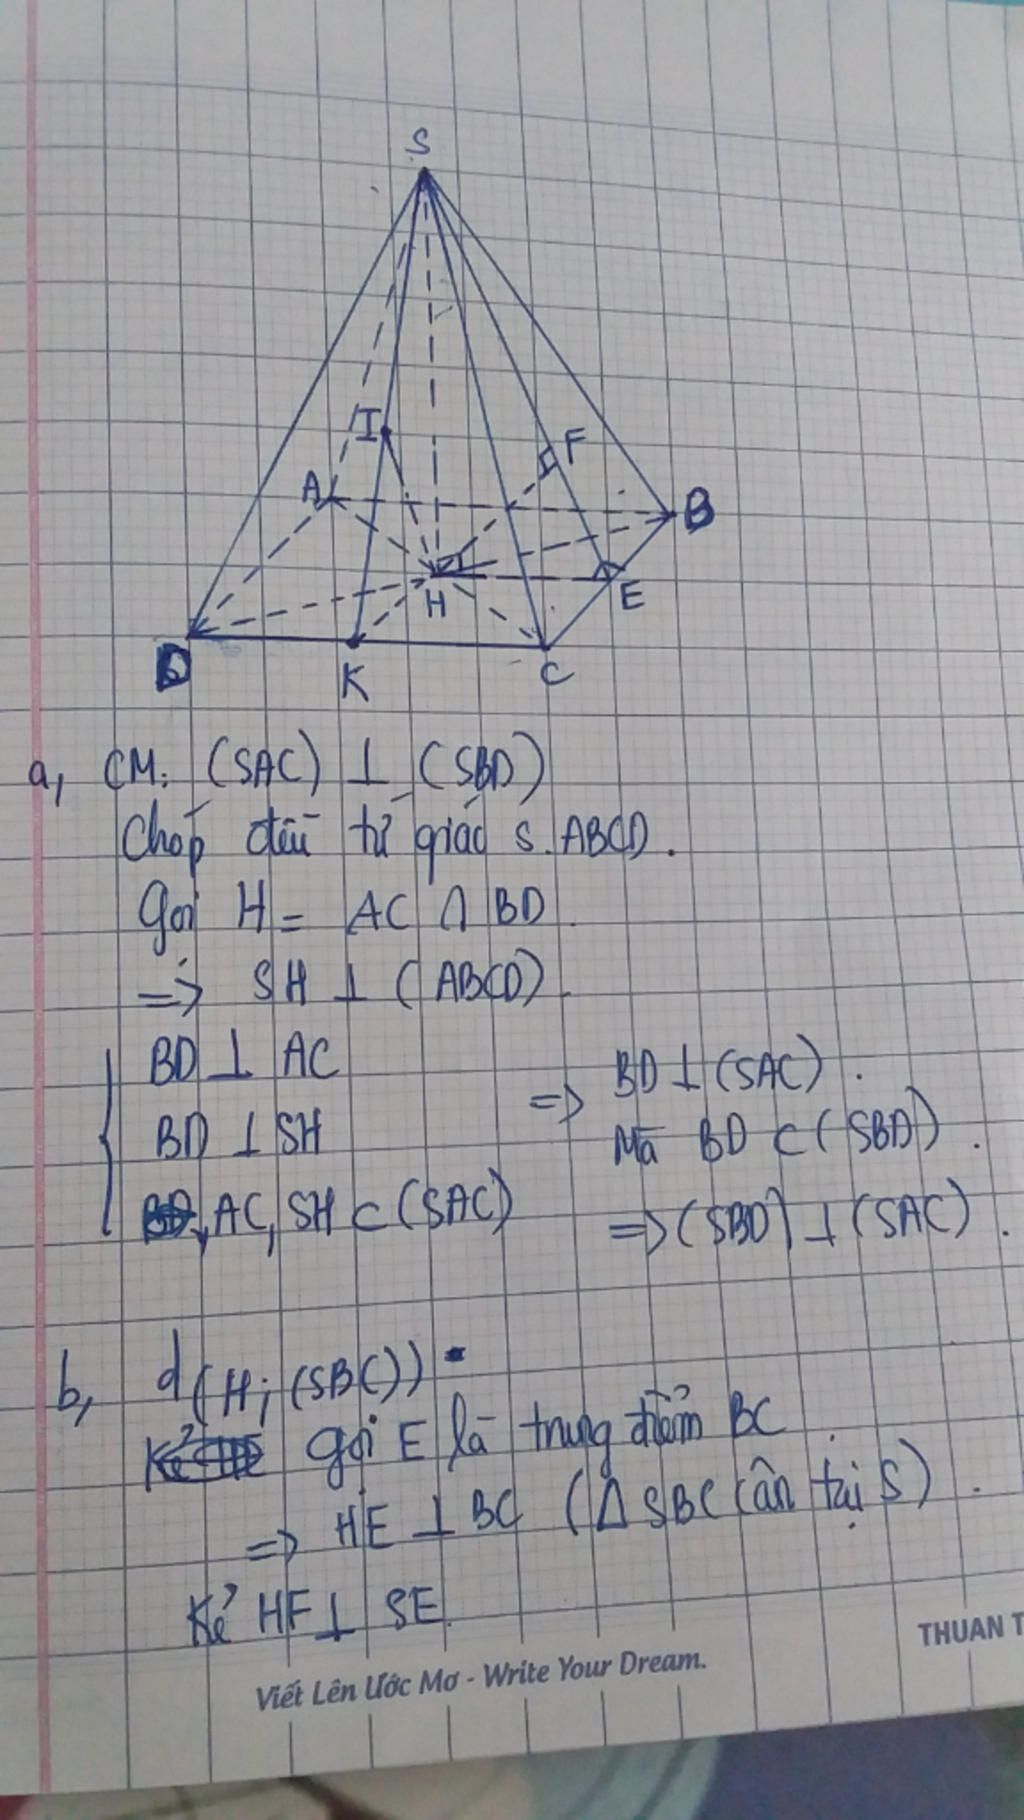 S
I
F
A
B
H
E
D
K
C
a, CM: (SAC) ⊥ (SBD)
Chóp đều tứ giác S.ABCD.
Gọi H = AC ∩ BD.
=> SH ⊥ (ABCD).
BD ⊥ AC
BD ⊥ SH
AC, SH ⊂ (SAC)
=> BD ⊥ (SAC).
Mà BD ⊂ (SBD).
=> (SBD) ⊥ (SAC).
b, d(H; (SBC))
Gọi E là trung điểm BC.
=> HE ⊥ BC (Δ SBC cân tại S).
Kẻ HF ⊥ SE
Viết Lên Ước Mơ - Write Your Dream.
THUAN T